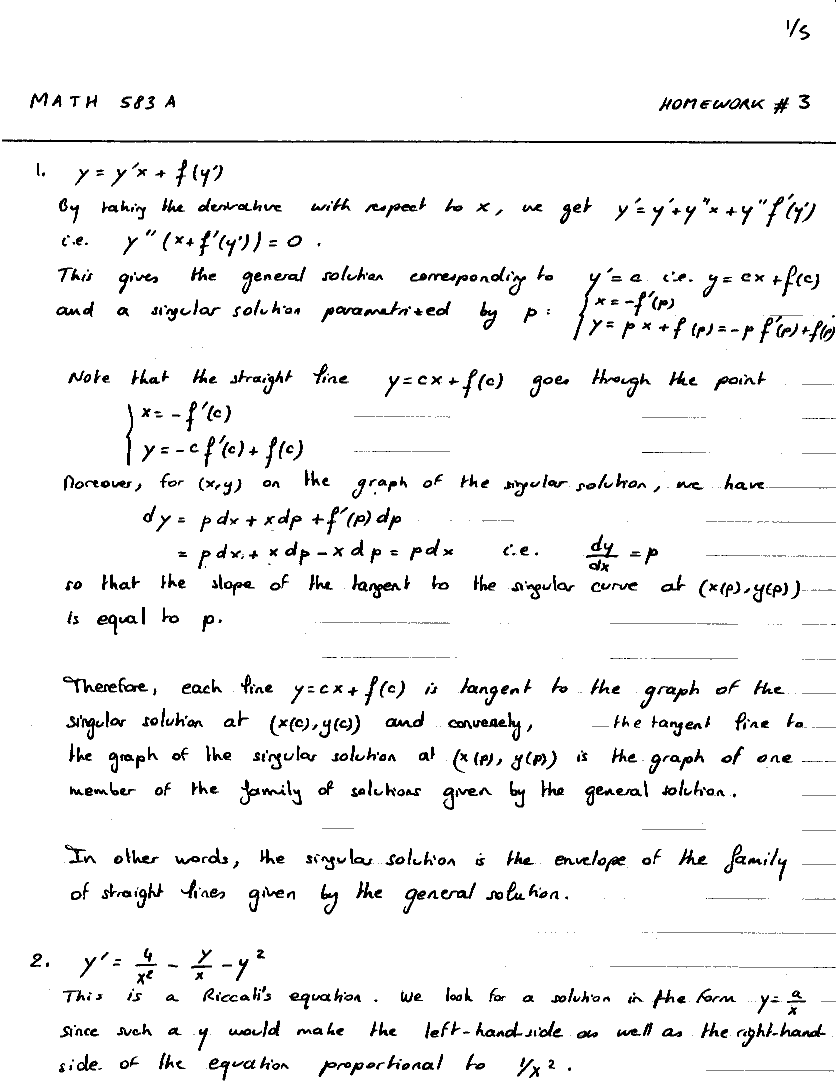 1/5
MATH 583 A HOMEWORK # 3
1. y = y'x + f(y')
By taking the derivative with respect to x, we get y' = y' + y''x + y'' f'(y')
i.e. y'' (x + f'(y')) = 0 .
This gives the general solution corresponding to y' = c i.e. y = cx + f(c)
and a singular solution parametrized by p : { x = -f'(p)
y = p x + f(p) = -p f'(p) + f(p)
Note that the straight line y = cx + f(c) goes through the point
{ x = -f'(c)
y = -c f'(c) + f(c)
Moreover, for (x,y) on the graph of the singular solution, we have
dy = p dx + x dp + f'(p) dp
= p dx + x dp - x dp = p dx i.e. dy/dx = p
so that the slope of the tangent to the singular curve at (x(p), y(p))
is equal to p.
Therefore, each line y = cx + f(c) is tangent to the graph of the
singular solution at (x(c), y(c)) and conversely, the tangent line to
the graph of the singular solution at (x(p), y(p)) is the graph of one
member of the family of solutions given by the general solution.
In other words, the singular solution is the envelope of the family
of straight lines given by the general solution.
2. y' = 4/x² - y/x - y²
This is a Riccati's equation. We look for a solution in the form y = a/x
since such a y would make the left-hand-side as well as the right-hand-
side of the equation proportional to 1/x² .